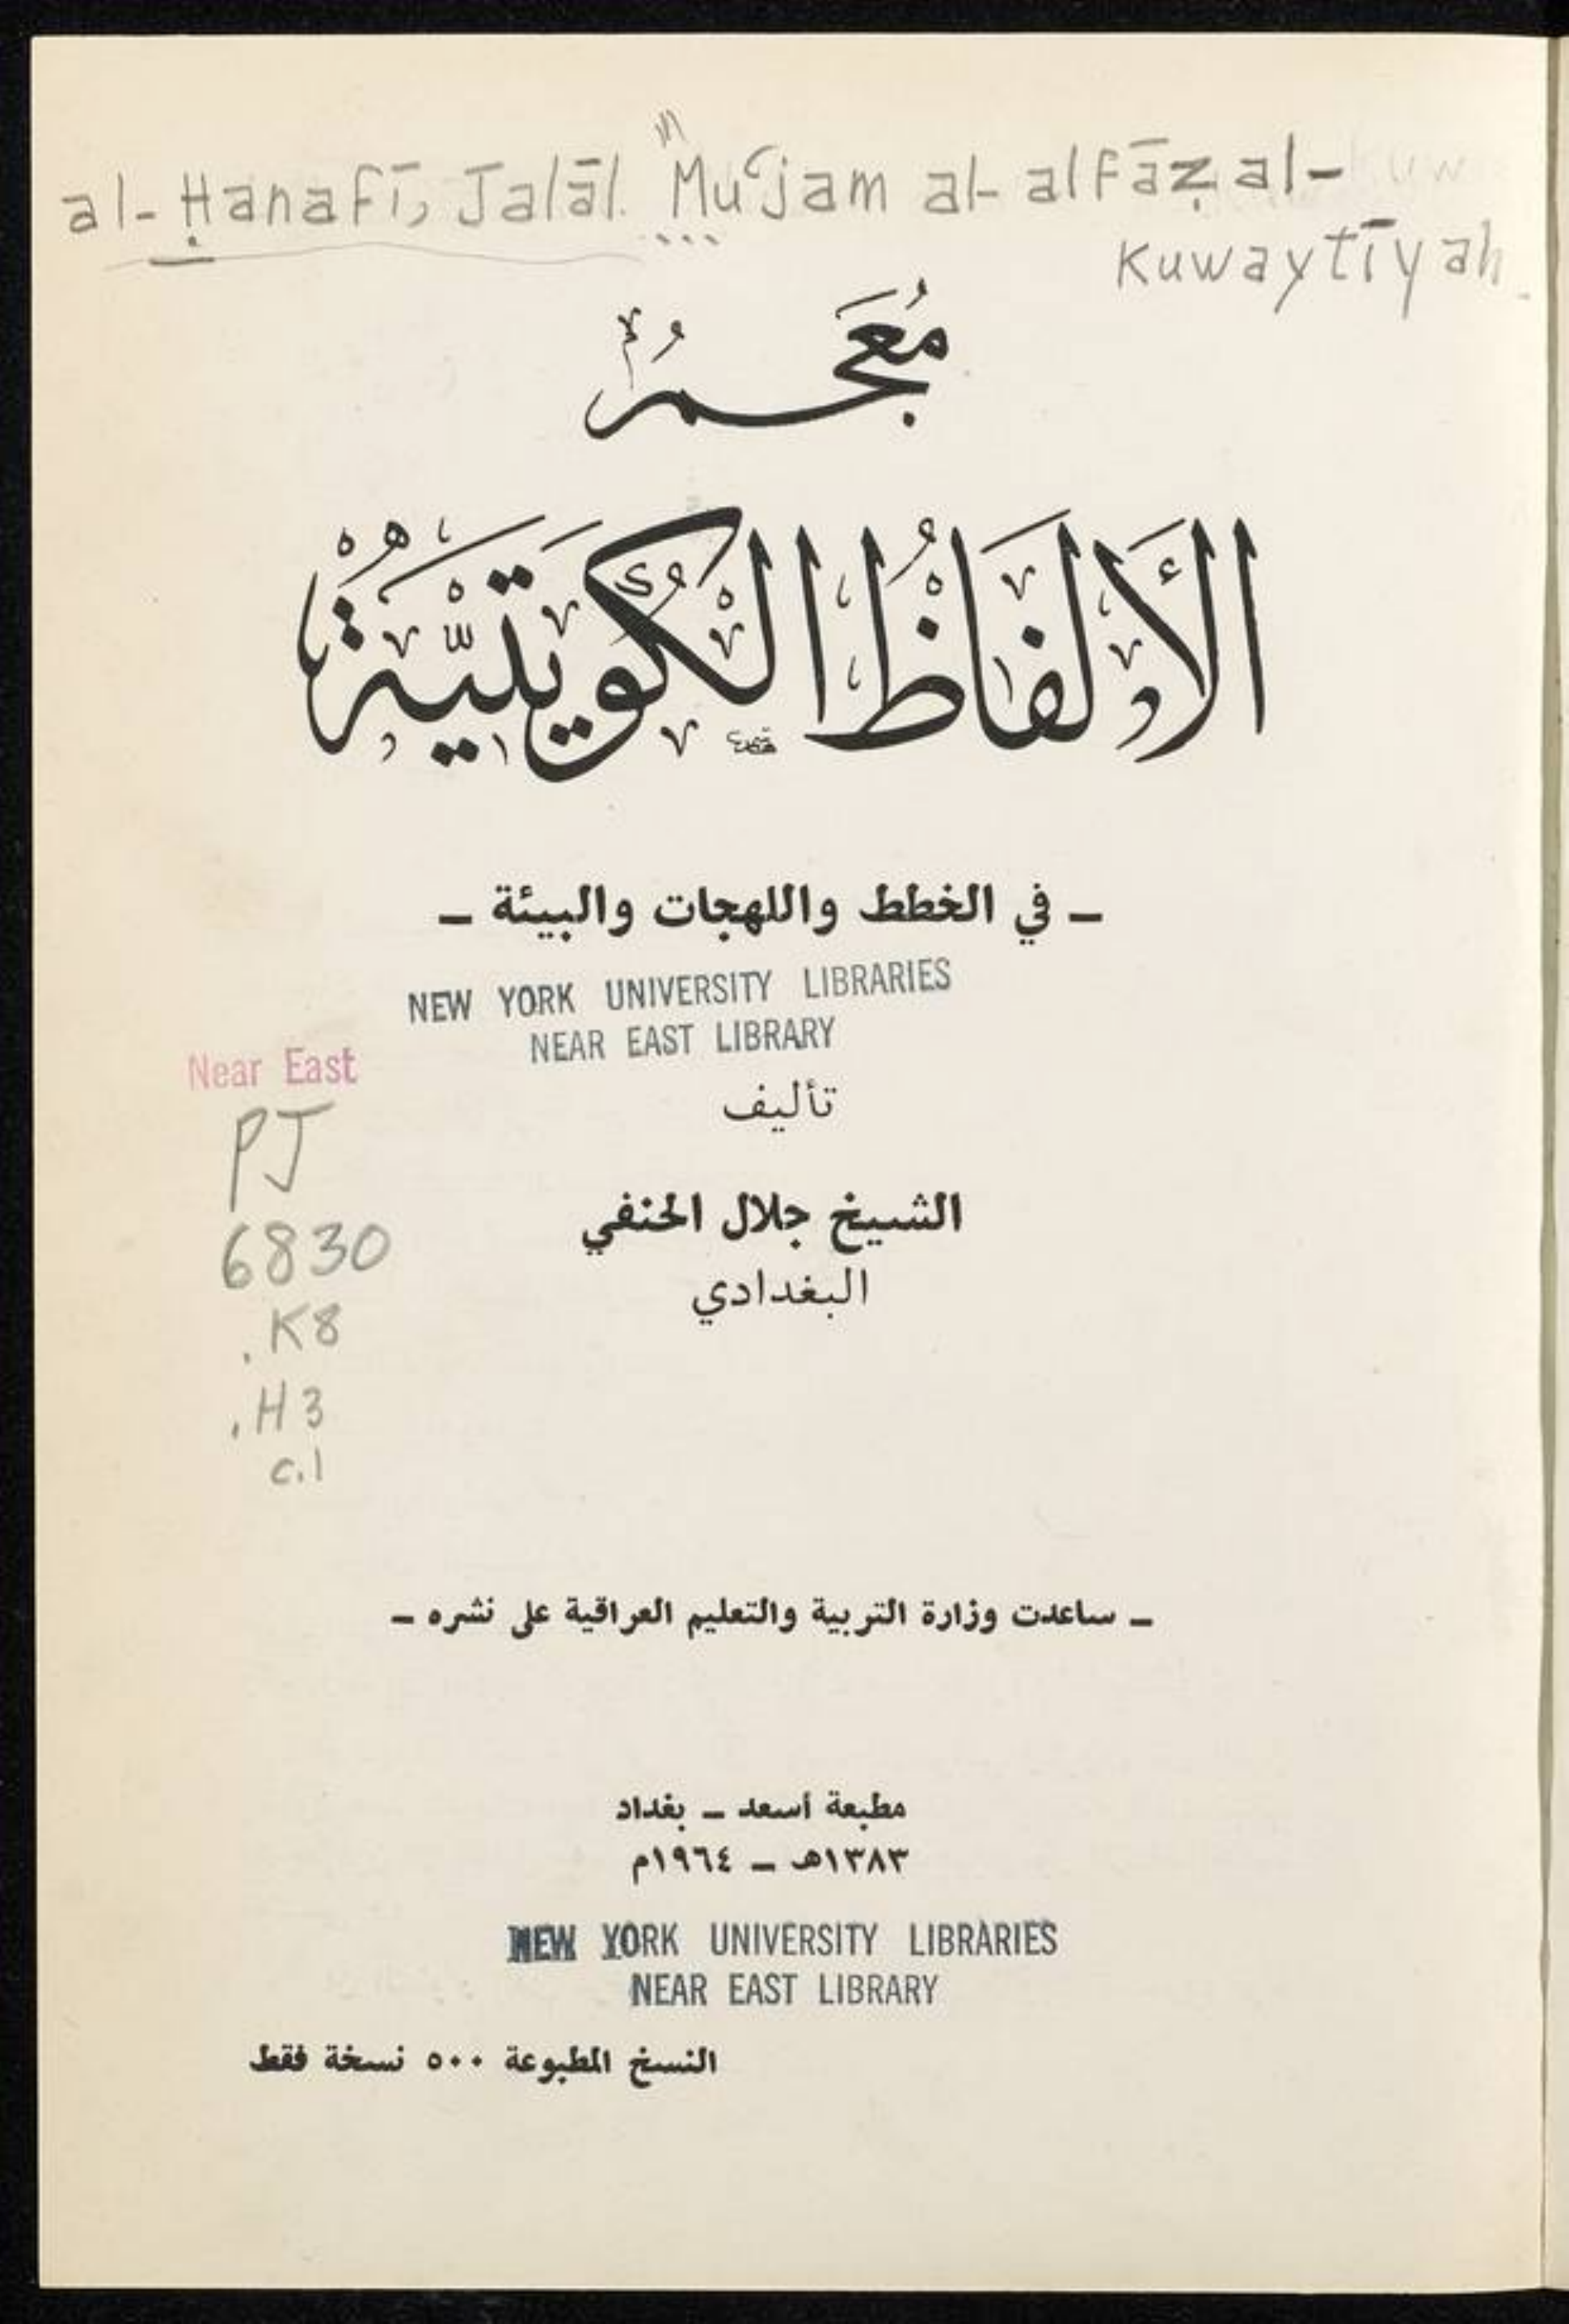 al-Ḥanafī, Jalāl. Muʿjam al-alfāẓ al-
Kuwaytīyah
مُعْجَمُ
الأَلفَاظُ الكُوَيتيَّةُ
ـ في الخطط واللهجات والبيئة ـ
NEW YORK UNIVERSITY LIBRARIES
NEAR EAST LIBRARY
Near East
تأليف
PJ
6830
.K8
.H3
c.1
الشيخ جلال الحنفي
البغدادي
ـ ساعدت وزارة التربية والتعليم العراقية على نشره ـ
مطبعة أسعد ـ بغداد
١٣٨٣هـ ـ ١٩٦٤م
NEW YORK UNIVERSITY LIBRARIES
NEAR EAST LIBRARY
النسخ المطبوعة ٥٠٠ نسخة فقط